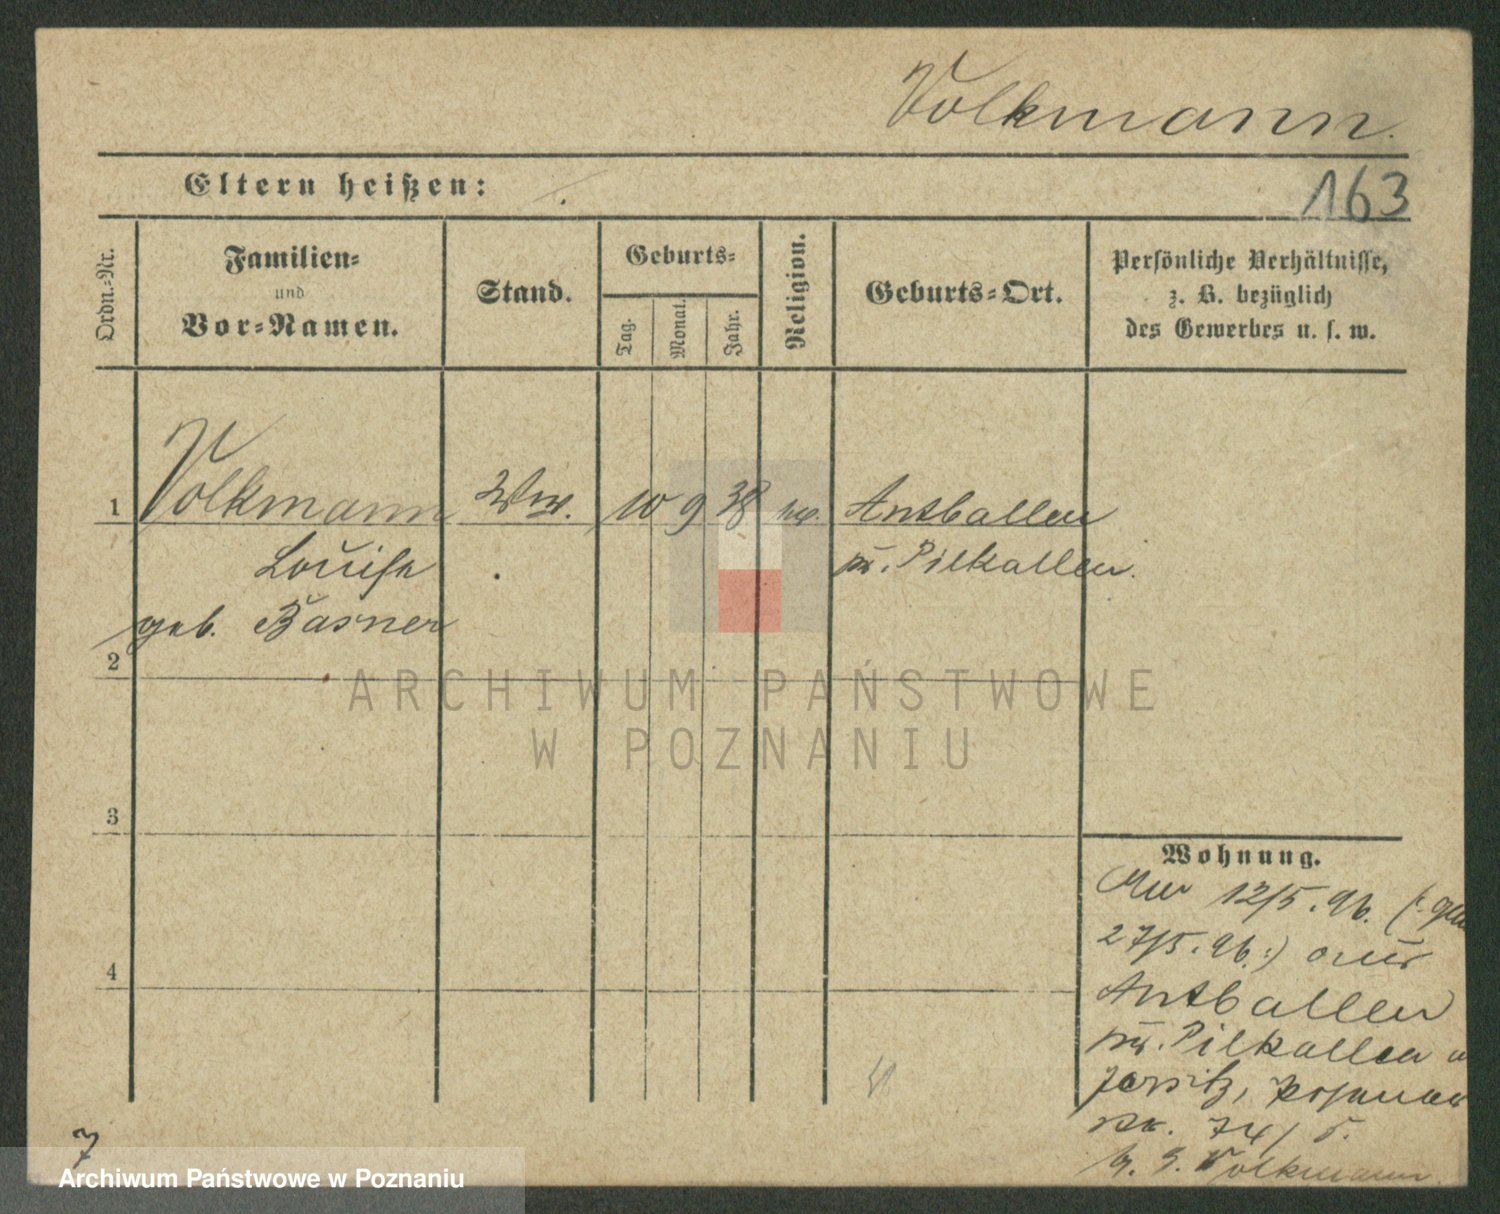 Volkmann.
Eltern heißen:
163
Ordn.-Nr.
Familien-
und
Vor-Namen.
Stand.
Geburts-
Tag.
Monat.
Jahr.
Religion.
Geburts-Ort.
Persönliche Verhältnisse,
z. B. bezüglich
des Gewerbes u. s. w.
1 Volkmann Ww. 10 9 38 Antballen
Louise kr. Pilkallen.
geb. Basner
2
3
4
Wohnung.
12/5.96.
27/5.96.:) aus
Antballen
kr. Pilkallen
Jersitz, Posener
str. 74/5.
b. G. Volkmann
7
ARCHIWUM PAŃSTWOWE
W POZNANIU
Archiwum Państwowe w Poznaniu